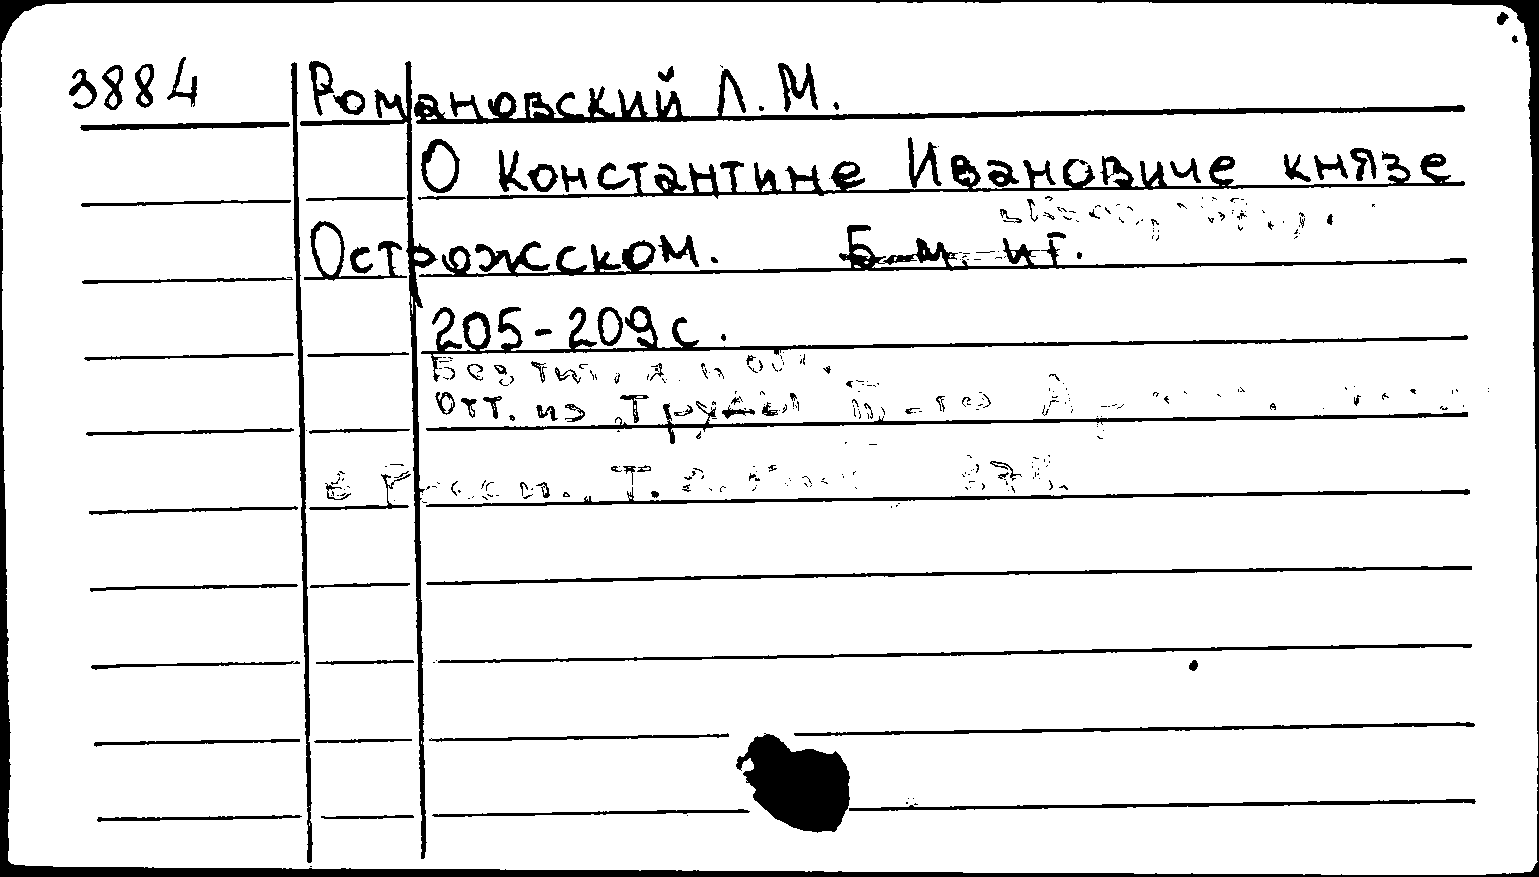 3884 Романовский Л. М.
О Константине Ивановиче князе
Острожском. Б. м. и г.
205-209 с.
Без тит. л. и обл.
Отт. из "Труды
в России. Т. 2.